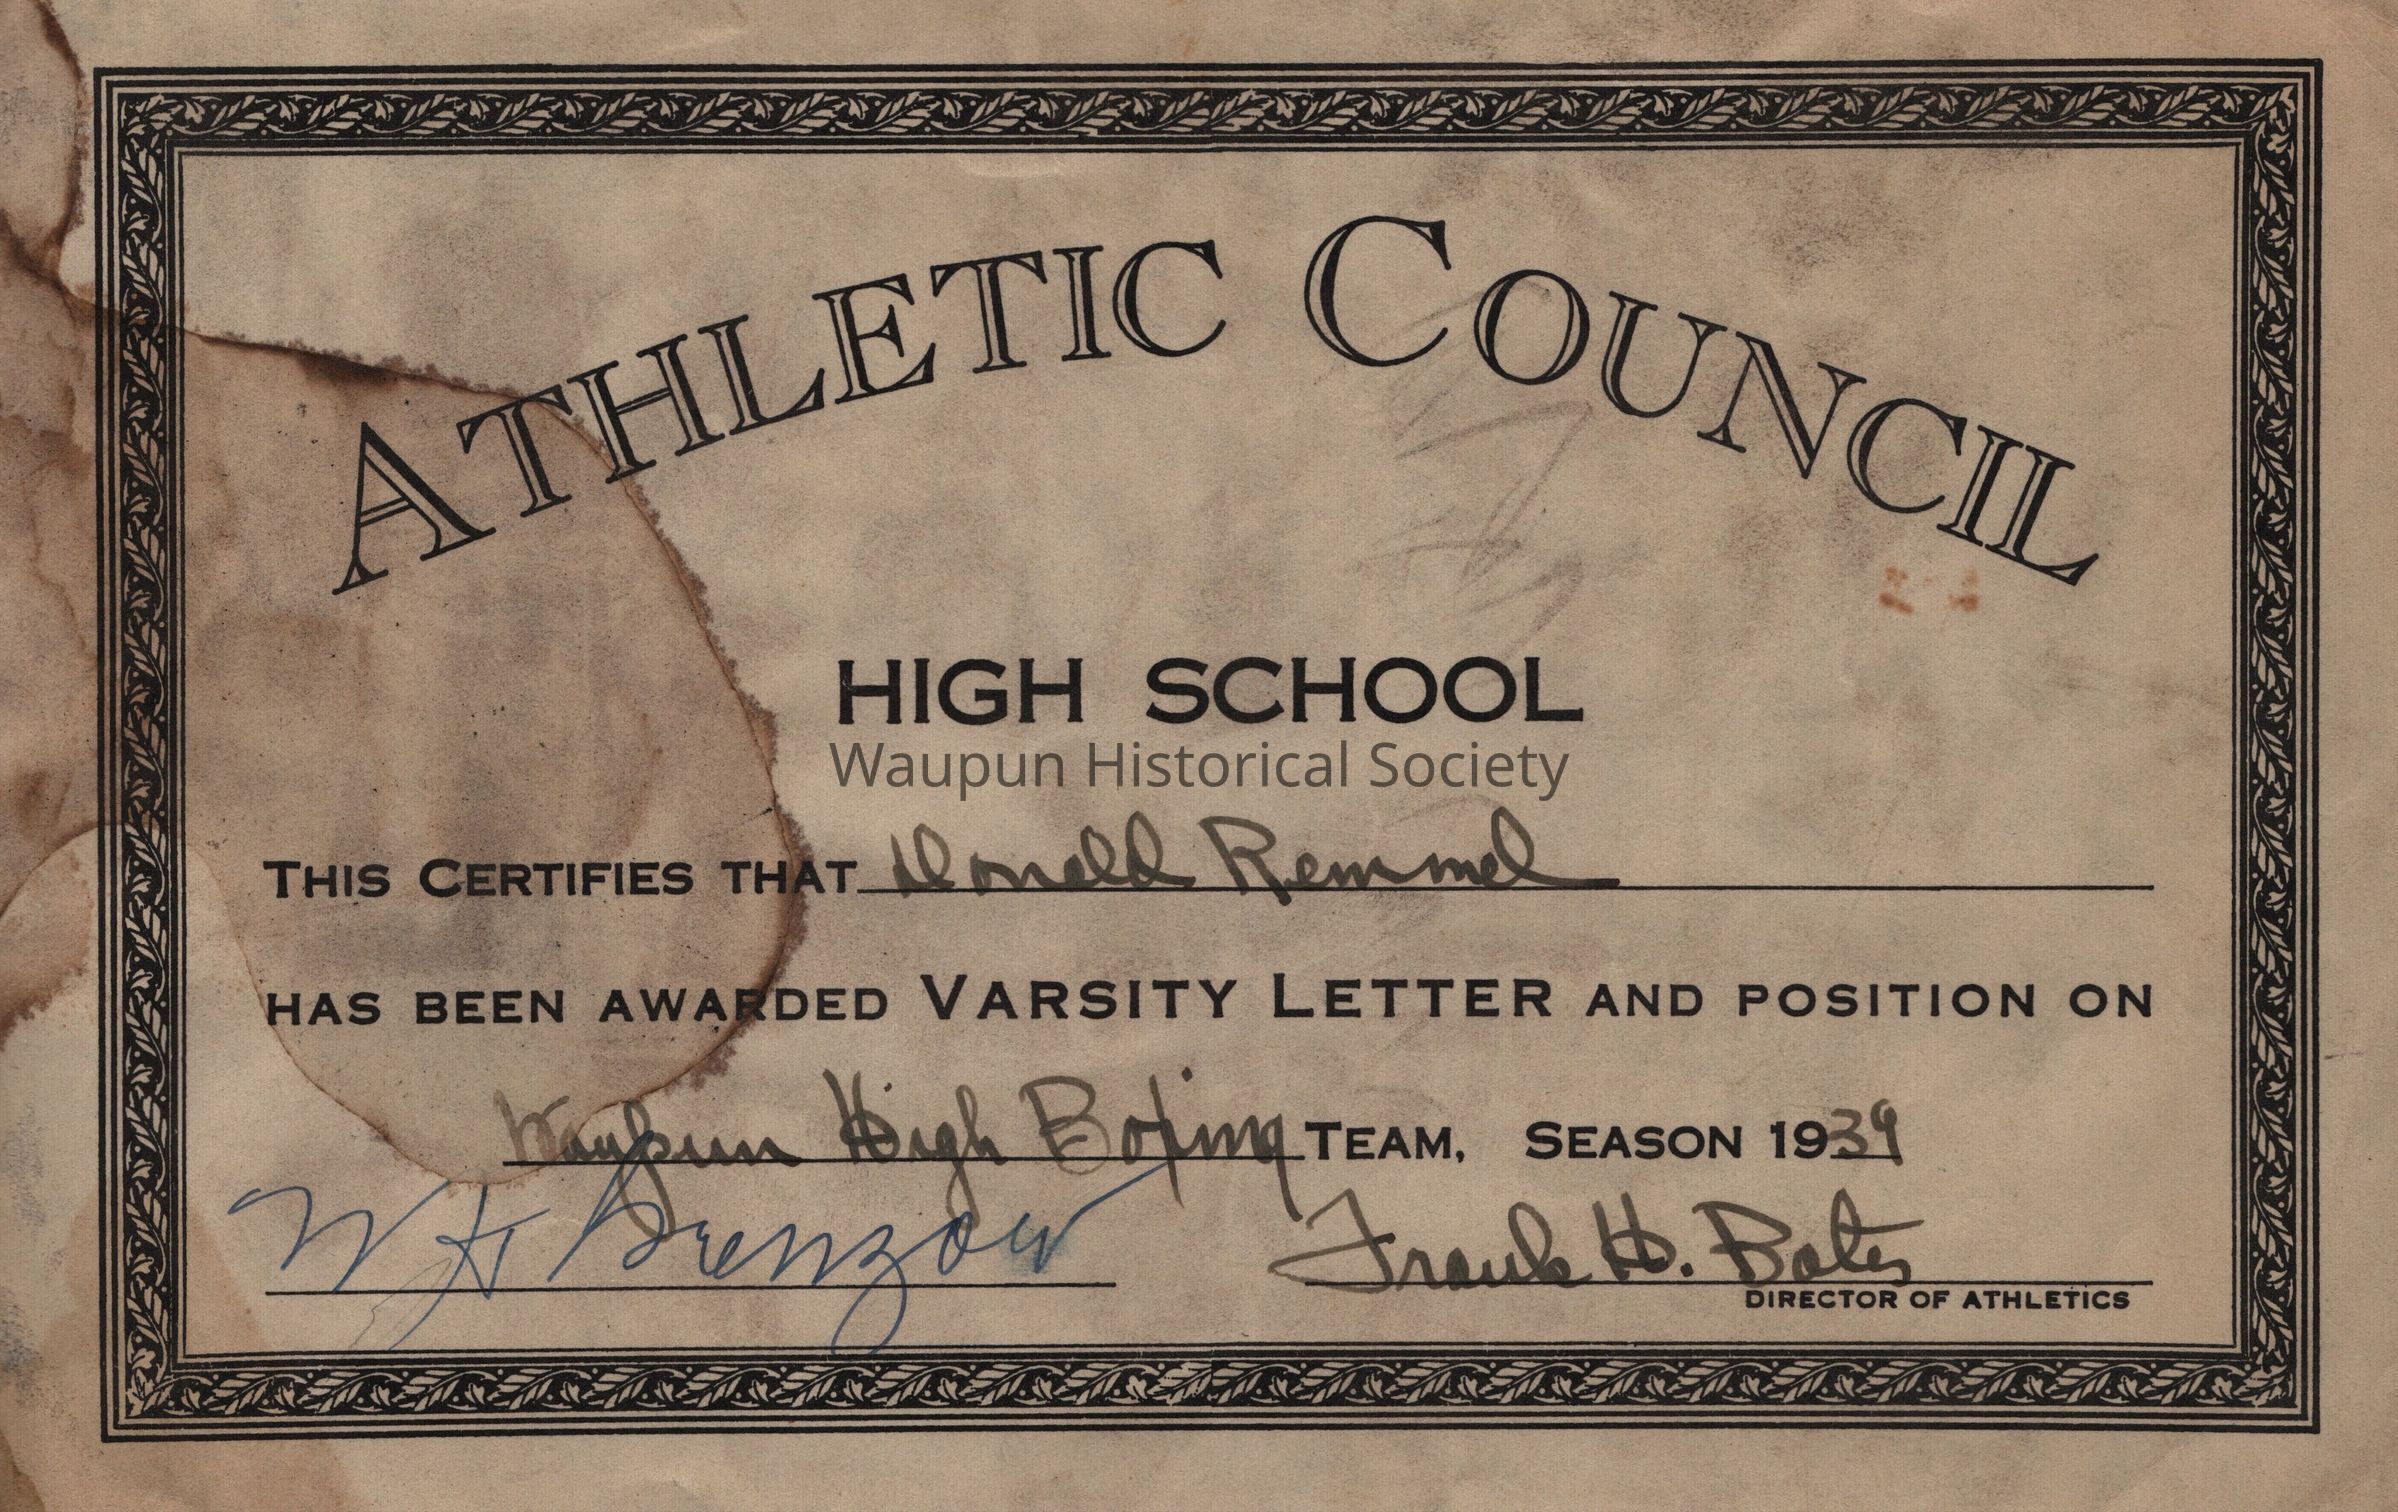 ATHLETIC COUNCIL
HIGH SCHOOL
Waupun Historical Society
THIS CERTIFIES THAT Donald Remmel
HAS BEEN AWARDED VARSITY LETTER AND POSITION ON
Waupun High Boxing TEAM, SEASON 1939
Frank H. Bates
DIRECTOR OF ATHLETICS